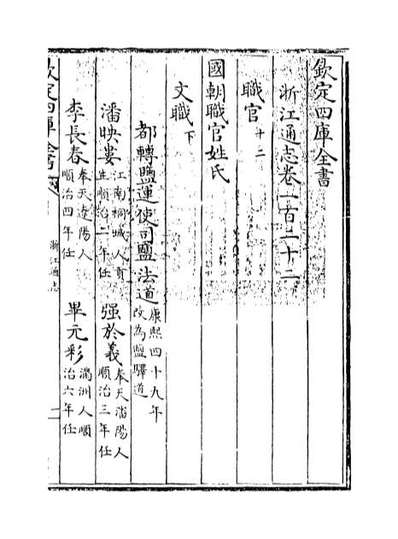 欽定四庫全書
浙江通志卷一百二十二
職官十二
國朝職官姓氏
文職下
都轉鹽運使司鹽法道康熙四十九年改為鹽驛道
潘映婁江南桐城人貢生順治二年任 强於義奉天瀋陽人順治三年任
李長春奉天遼陽人順治四年任 畢元彩滿洲人順治六年任
欽定四庫全書
浙江通志
一